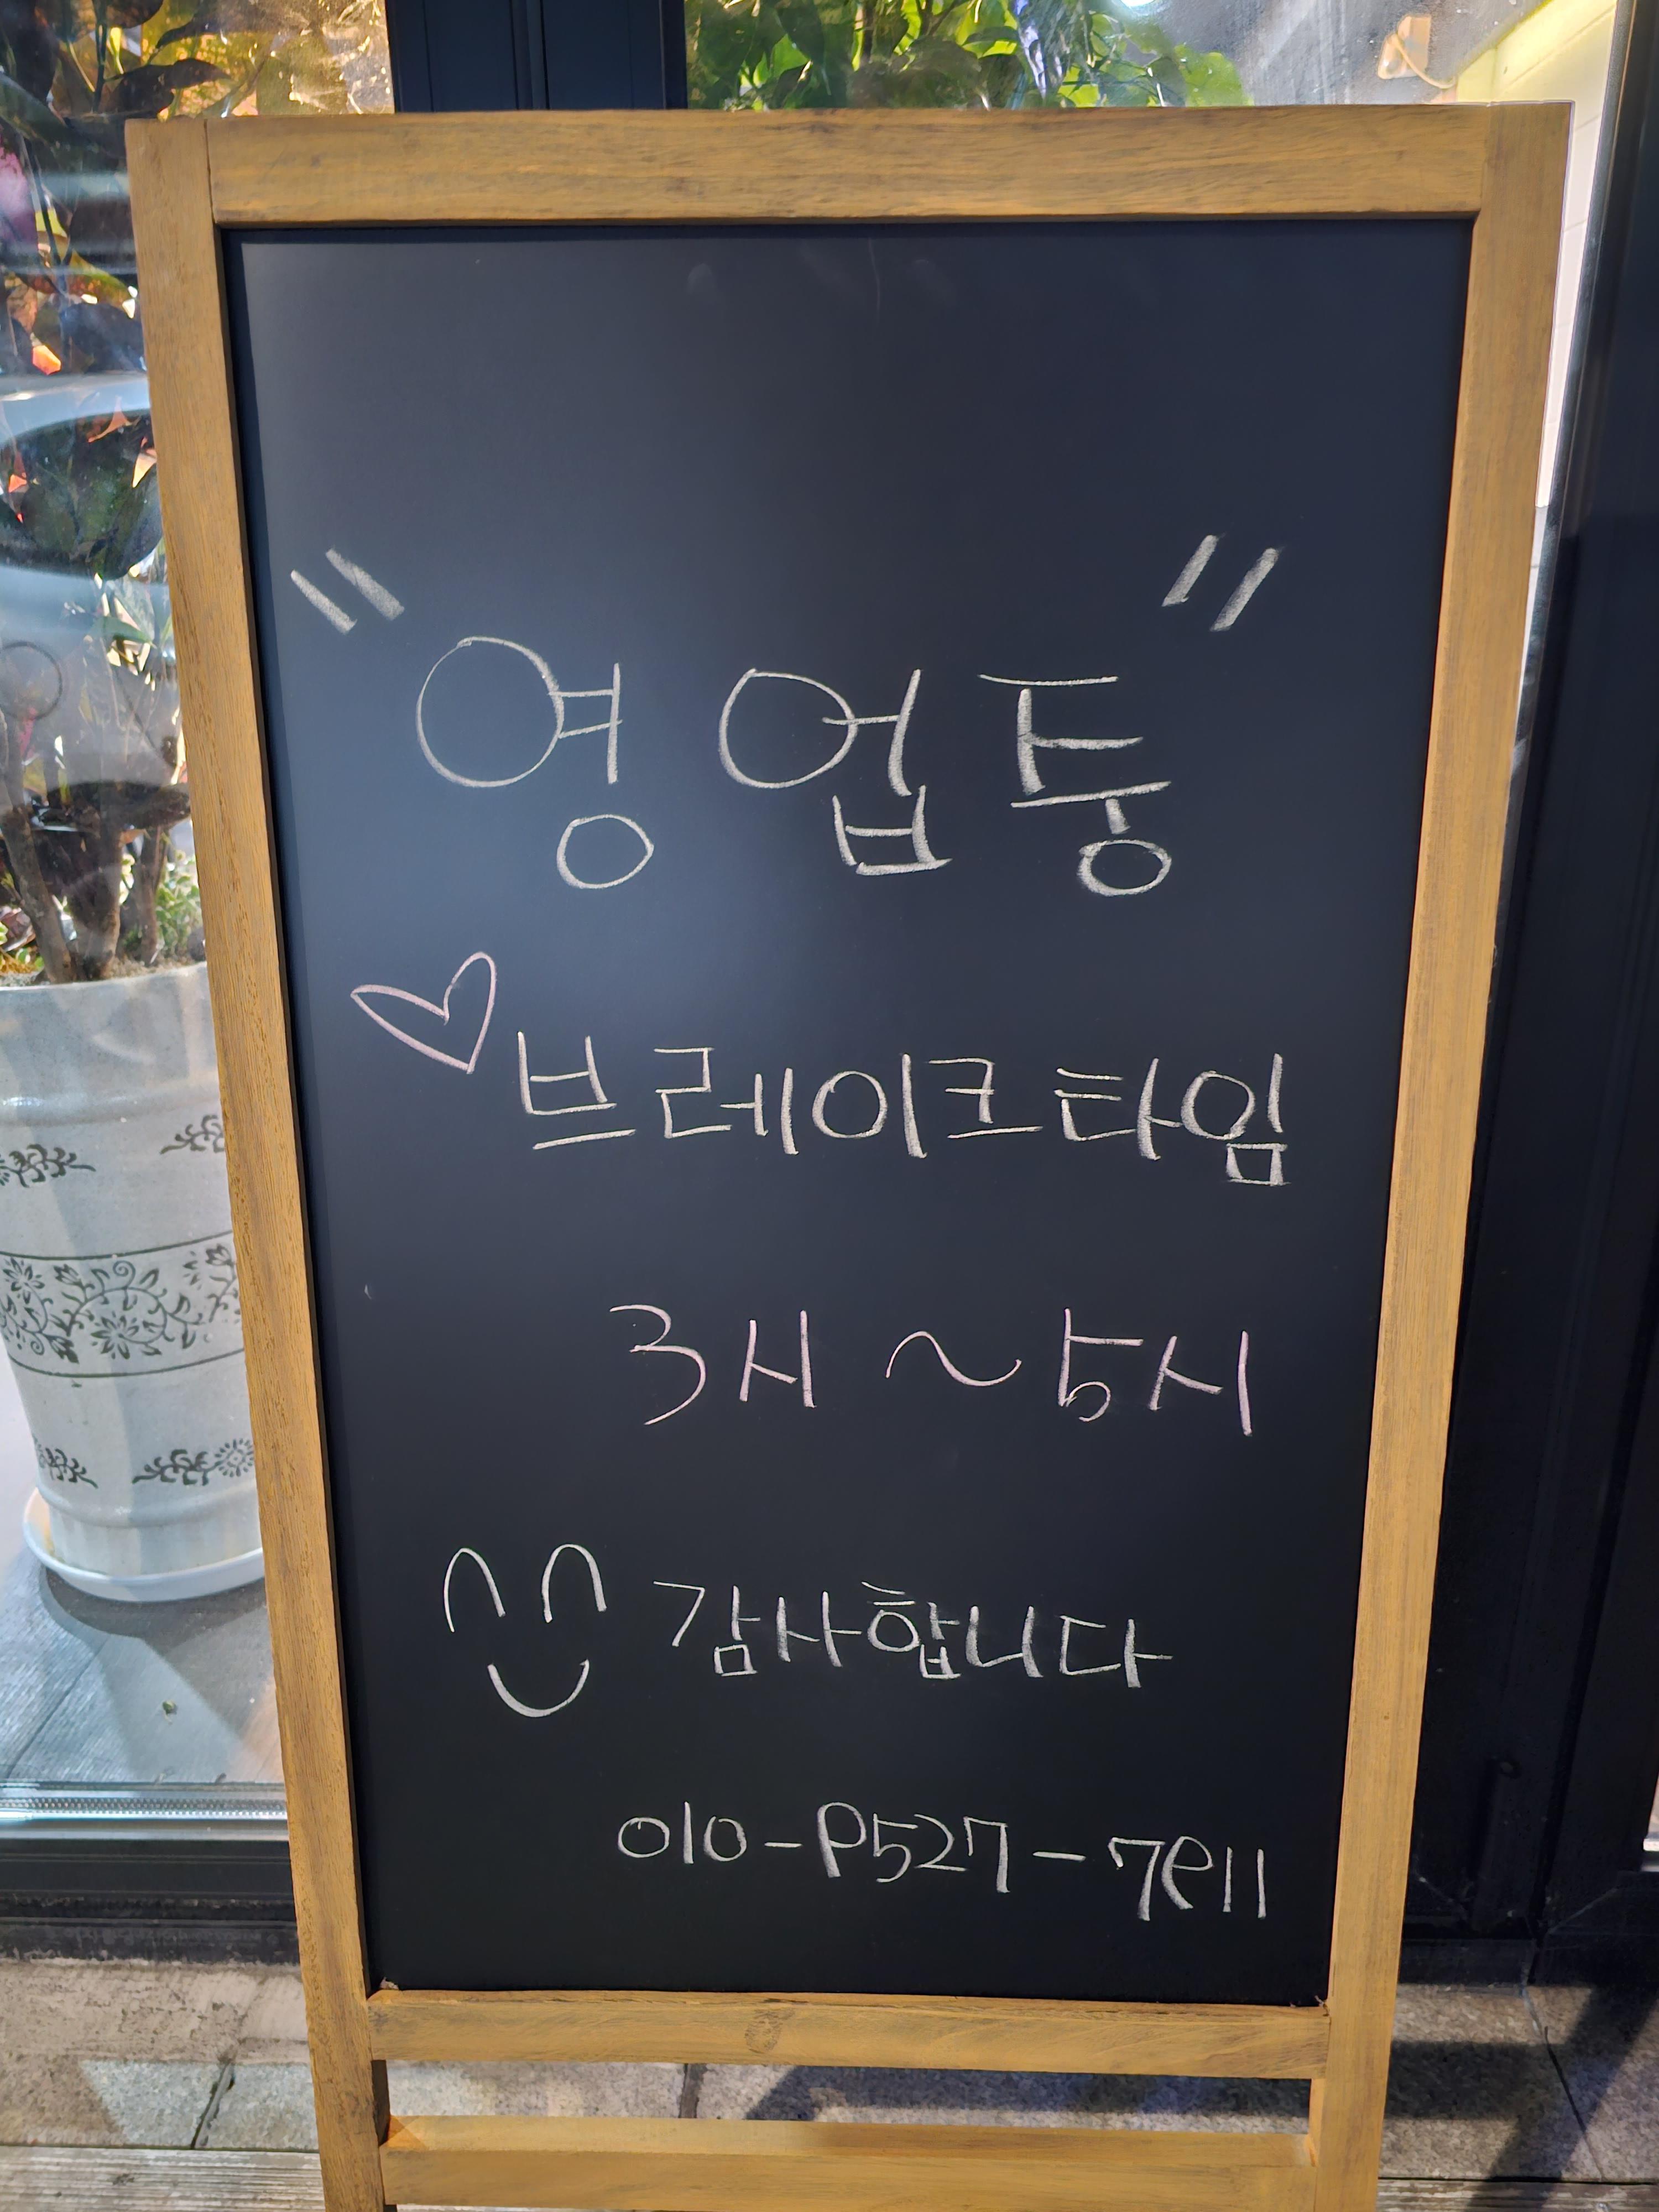 "영업중"
♡브레이크타임
3시~5시
감사합니다
010-9527-7911